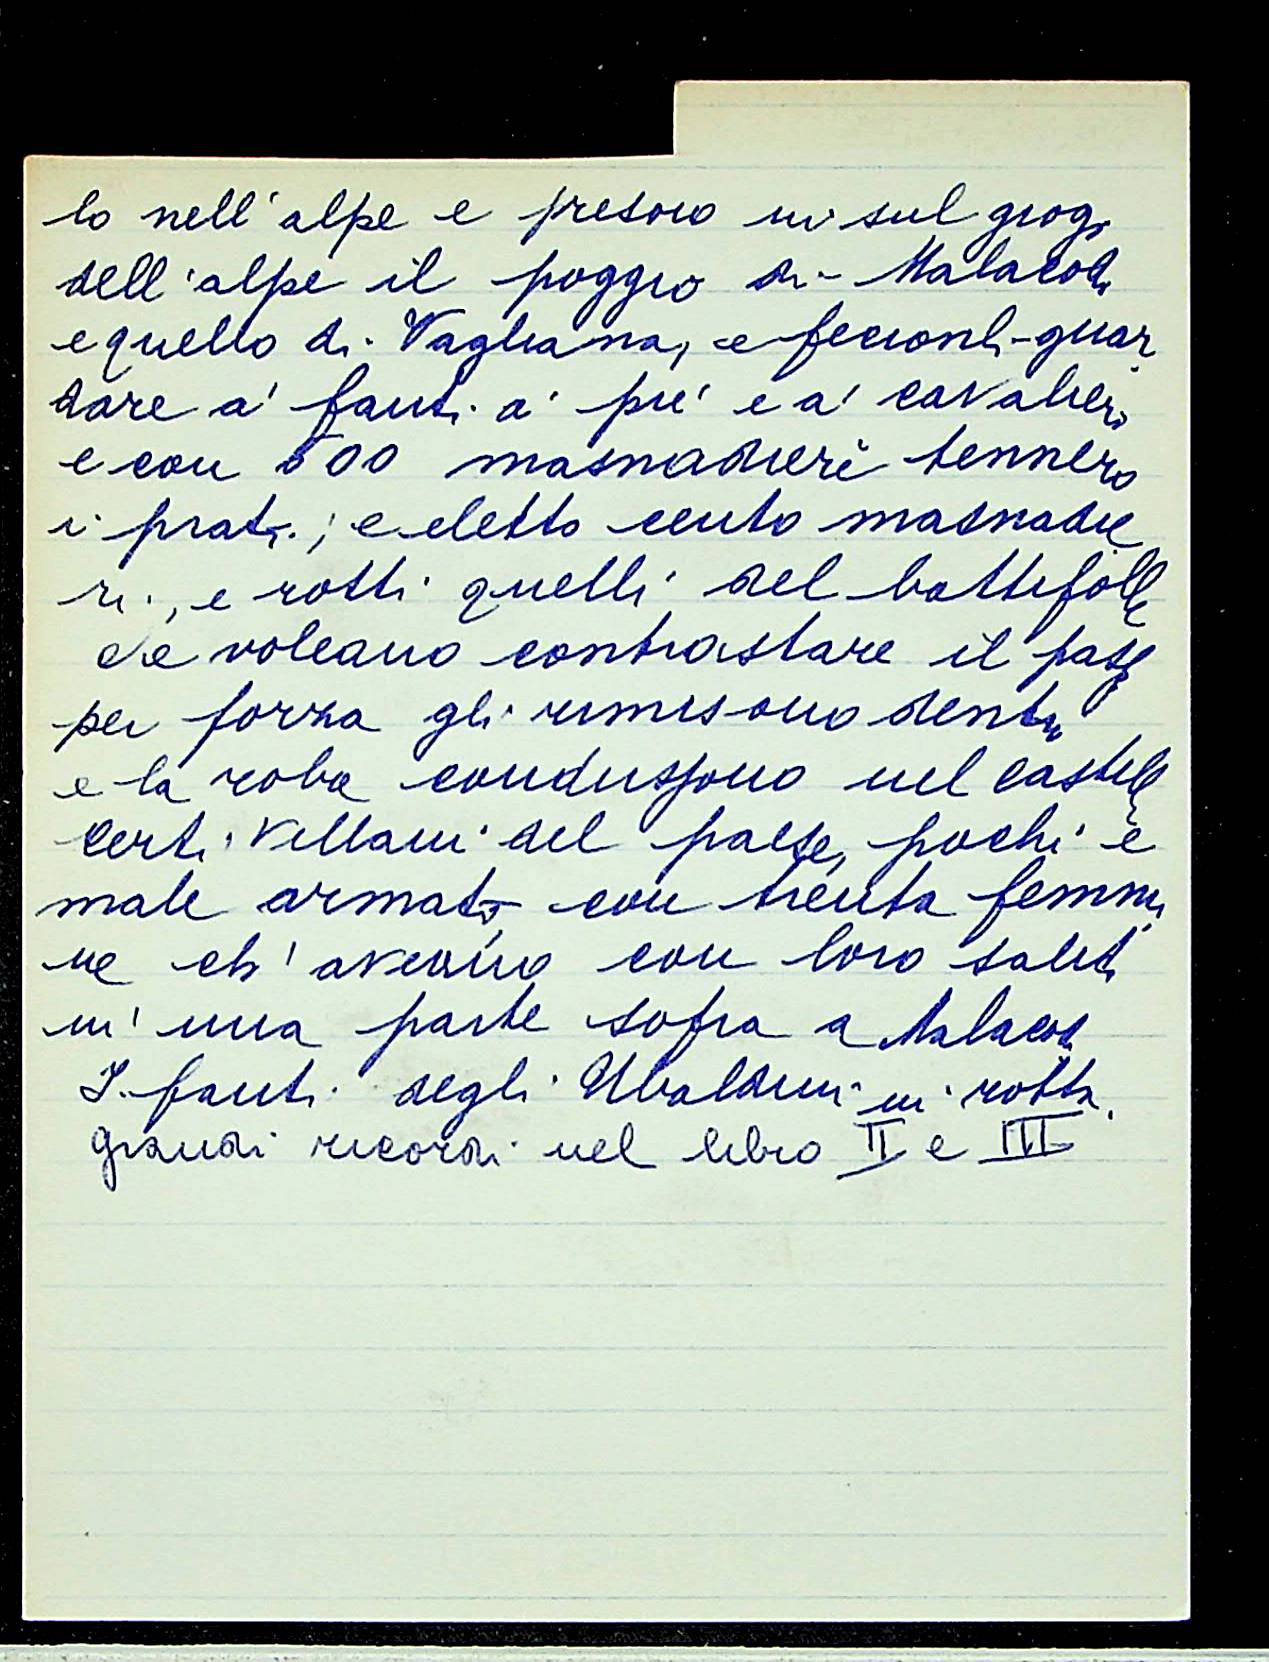 lo nell'alpe e presono in sul giogo
dell'alpe il poggio di Malacoda
e quello di Vagliana, e fecionli guar
dare a' fanti a' piè e a' cavalieri
e con 500 masnadieri tennero
i prati; e eletto cento masnadie
ri, e rotti quelli del battifolle
che voleano contrastare il passo
per forza gli rimisono dentro
e la roba condussono nel castello
Certi villani del paese, pochi e
male armati con trenta femmi
ne ch' avevano con loro saliti
in una parte sopra a Malacoda
I fanti degli Ubaldini in rotta.
grandi ricordi nel libro II e III